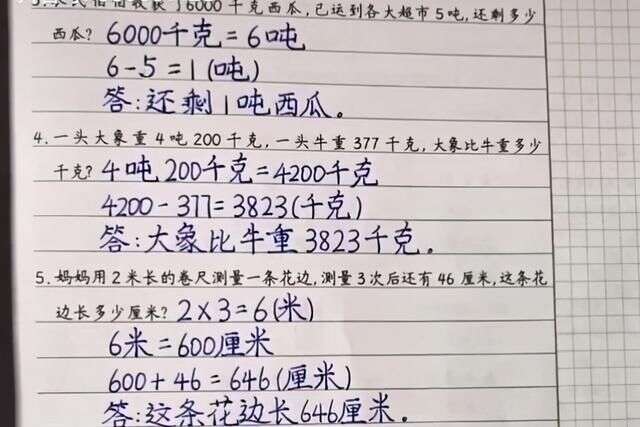 收获了6000千克西瓜,已运到各大超市5吨,还剩多少
西瓜? 6000千克=6吨
6-5=1(吨)
答:还剩1吨西瓜。
4.一头大象重4吨200千克,一头牛重377千克,大象比牛重多少
千克? 4吨200千克=4200千克
4200-377=3823(千克)
答:大象比牛重3823千克。
5.妈妈用2米长的卷尺测量一条花边,测量3次后还有46厘米,这条花
边长多少厘米? 2×3=6(米)
6米=600厘米
600+46=646(厘米)
答:这条花边长646厘米。